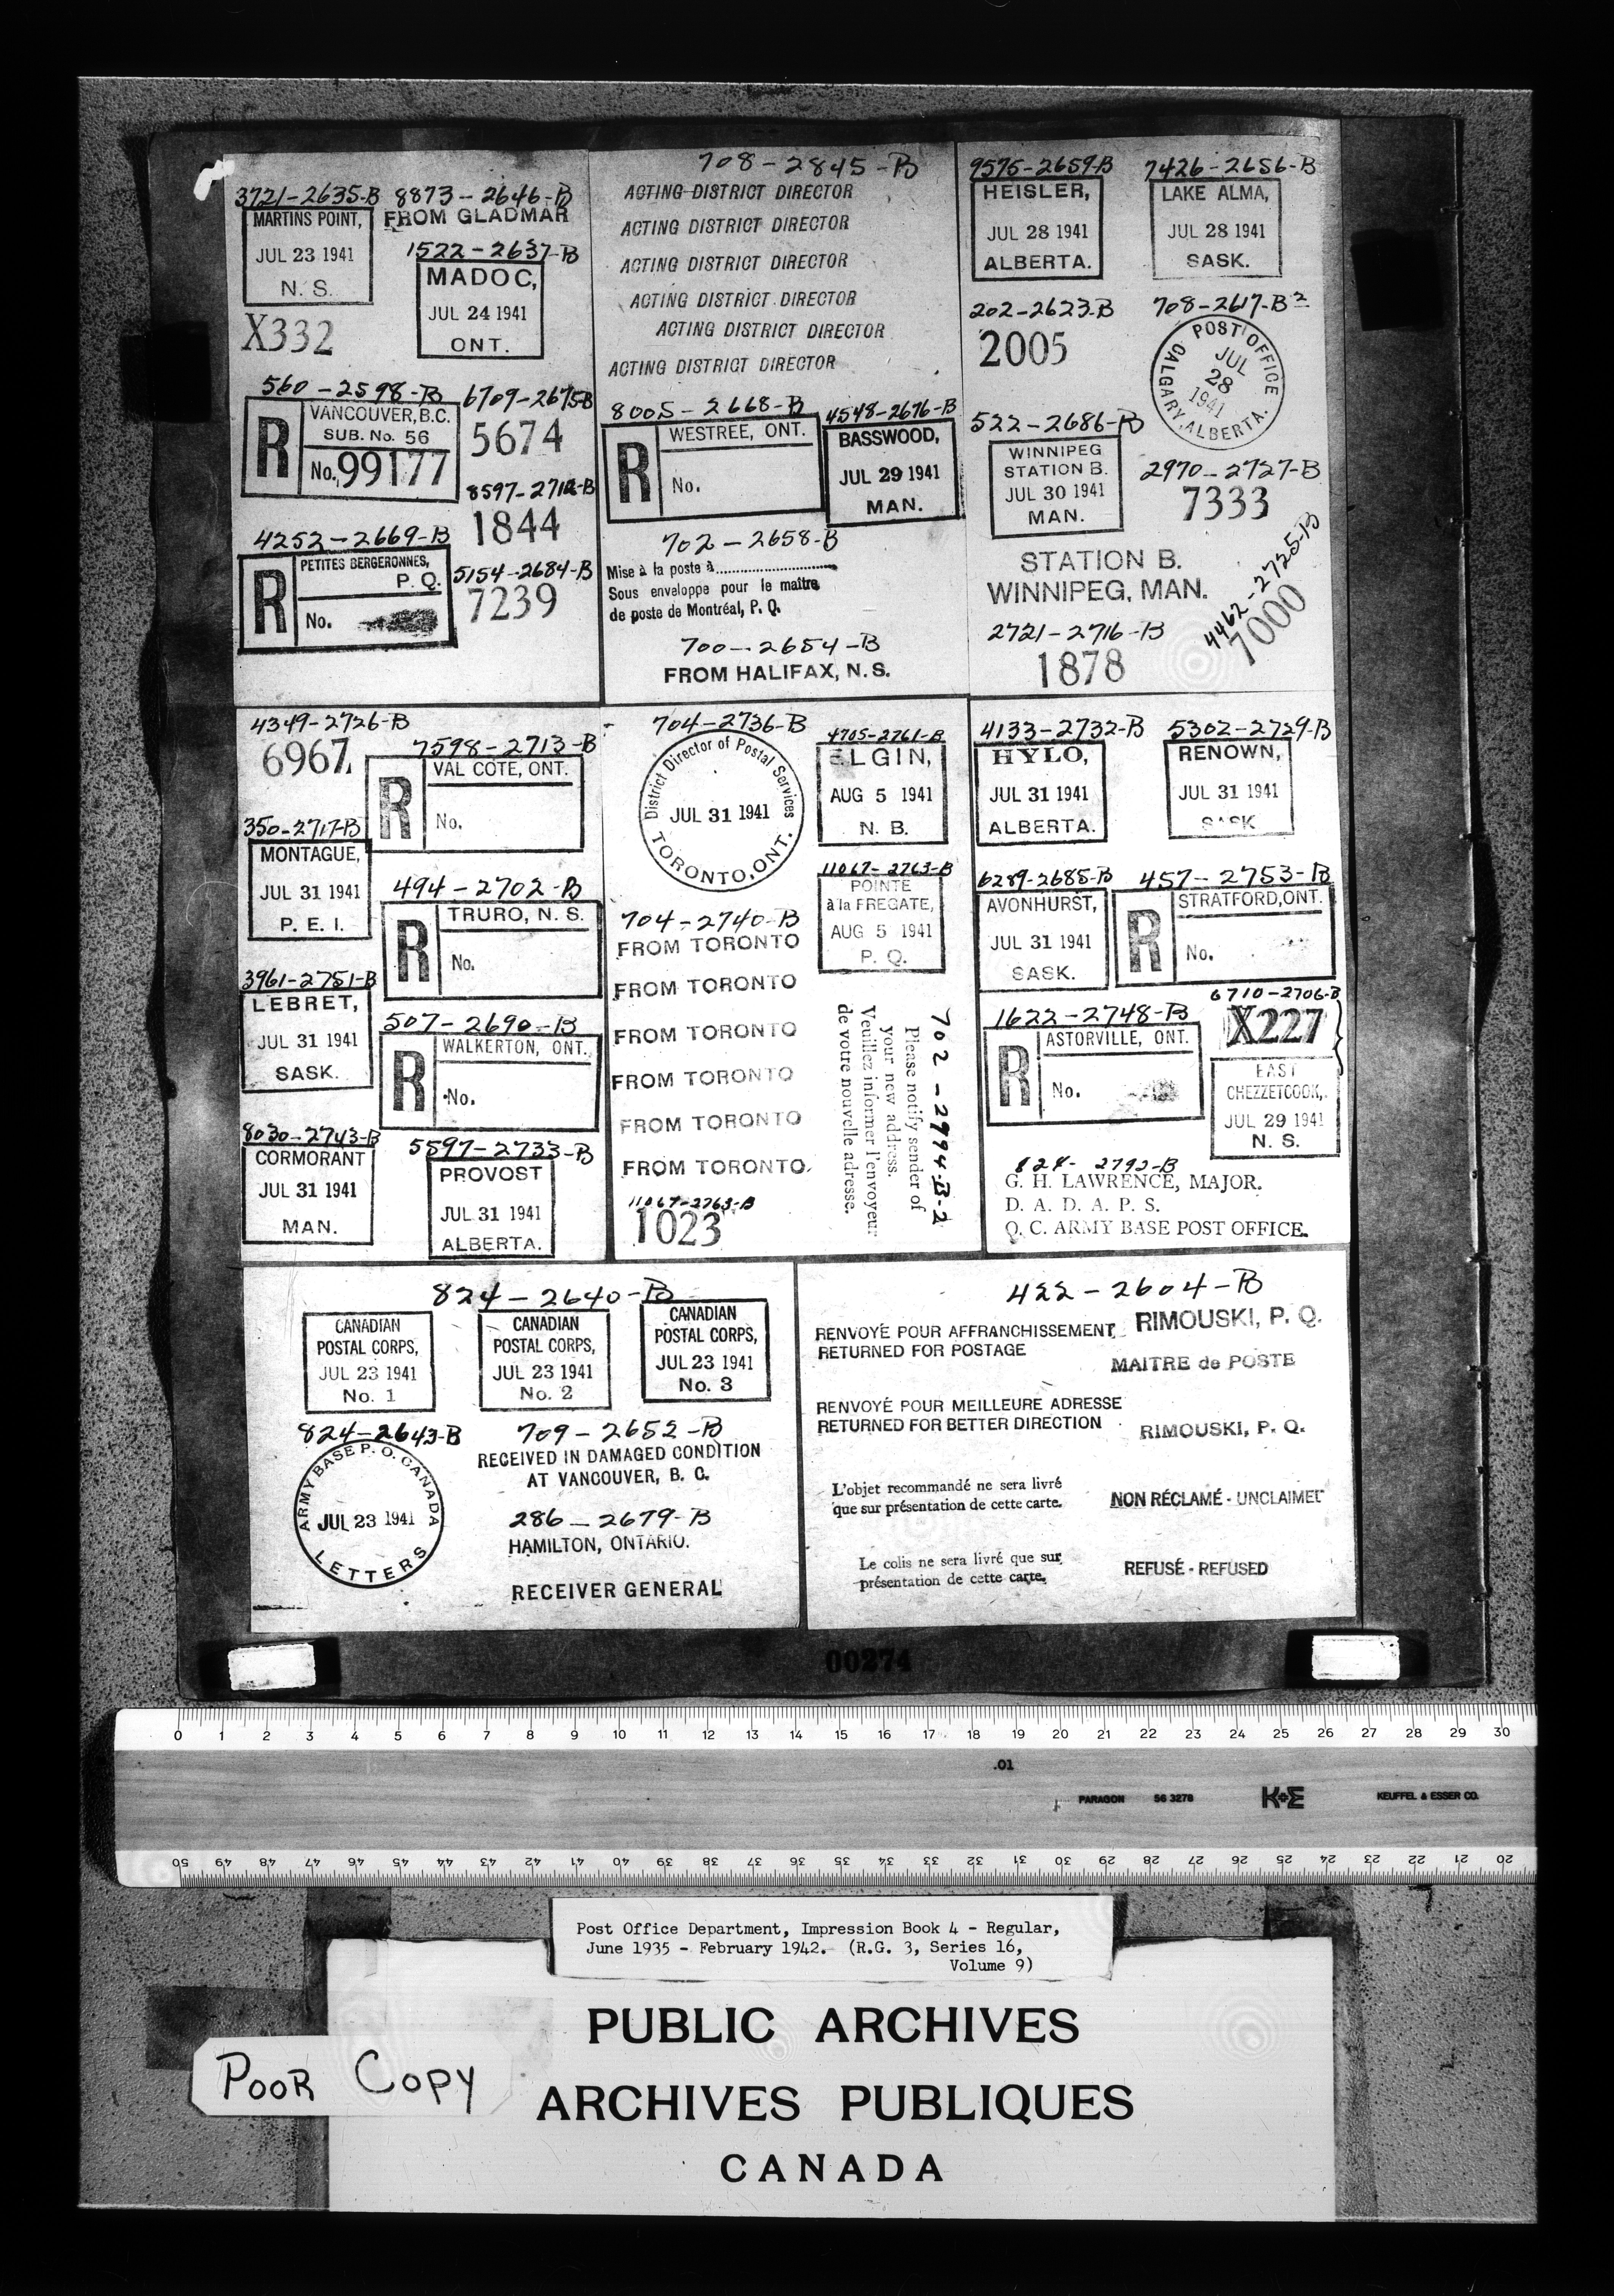 3721-2635-B
MARTINS POINT,
JUL 23 1941
N. S.
X332
8873-2646-B
FROM GLADMAR
1522-2637-B
MADOC,
JUL 24 1941
ONT.
560-2598-B
R
VANCOUVER, B.C.
SUB. No. 56
No. 99177
6709-2675-B
5674
8597-2712-B
1844
4252-2669-B
R
PETITES BERGERONNES,
P. Q.
No.
5154-2684-B
7239
708-2845-B
ACTING DISTRICT DIRECTOR
ACTING DISTRICT DIRECTOR
ACTING DISTRICT DIRECTOR
ACTING DISTRICT DIRECTOR
ACTING DISTRICT DIRECTOR
ACTING DISTRICT DIRECTOR
8005-2668-B
R
WESTREE, ONT.
No.
4548-2676-B
BASSWOOD,
JUL 29 1941
MAN.
702-2658-B
Mise à la poste à
Sous enveloppe pour le maître
de poste de Montréal, P. Q.
700-2654-B
FROM HALIFAX, N. S.
9575-2659-B
HEISLER,
JUL 28 1941
ALBERTA.
7426-2656-B
LAKE ALMA,
JUL 28 1941
SASK.
202-2623-B
2005
708-2617-B2
POST OFFICE
JUL
28
1941
CALGARY, ALBERTA.
522-2686-B
WINNIPEG
STATION B.
JUL 30 1941
MAN.
2970-2727-B
7333
STATION B.
WINNIPEG, MAN.
4462-2725-B
7000
2721-2716-B
1878
4349-2726-B
6967
7598-2713-B
R
VAL COTE, ONT.
No.
350-2717-B
MONTAGUE,
JUL 31 1941
P. E. I.
494-2702-B
R
TRURO, N. S.
No.
3961-2751-B
LEBRET,
JUL 31 1941
SASK.
507-2690-B
R
WALKERTON, ONT.
No.
8030-2743-B
CORMORANT
JUL 31 1941
MAN.
5597-2733-B
PROVOST
JUL 31 1941
ALBERTA.
704-2736-B
District Director of Postal Services
JUL 31 1941
TORONTO, ONT.
4705-2761-B
ELGIN,
AUG 5 1941
N. B.
11067-2763-B
POINTE
à la FREGATE,
AUG 5 1941
P. Q.
704-2740-B
FROM TORONTO
FROM TORONTO
FROM TORONTO
FROM TORONTO
FROM TORONTO
FROM TORONTO
11067-2763-B
1023
702-2994-B-2
Please notify sender of
your new address.
Veuillez informer l'envoyeur
de votre nouvelle adresse.
4133-2732-B
HYLO,
JUL 31 1941
ALBERTA.
5302-2729-B
RENOWN,
JUL 31 1941
SASK
6289-2685-B
AVONHURST,
JUL 31 1941
SASK.
457-2753-B
R
STRATFORD, ONT.
No.
1622-2748-B
R
ASTORVILLE, ONT.
No.
6710-2706-B
X227
EAST
CHEZZETCOOK,
JUL 29 1941
N. S.
824-2792-B
G. H. LAWRENCE, MAJOR.
D. A. D. A. P. S.
Q. C. ARMY BASE POST OFFICE.
824-2640-B
CANADIAN
POSTAL CORPS,
JUL 23 1941
No. 1
CANADIAN
POSTAL CORPS,
JUL 23 1941
No. 2
CANADIAN
POSTAL CORPS,
JUL 23 1941
No. 3
824-2643-B
ARMY BASE P. O. CANADA
JUL 23 1941
LETTERS
709-2652-B
RECEIVED IN DAMAGED CONDITION
AT VANCOUVER, B. C.
286-2679-B
HAMILTON, ONTARIO.
RECEIVER GENERAL
422-2604-B
RENVOYÉ POUR AFFRANCHISSEMENT
RETURNED FOR POSTAGE
RIMOUSKI, P. Q.
MAITRE de POSTE
RENVOYÉ POUR MEILLEURE ADRESSE
RETURNED FOR BETTER DIRECTION
RIMOUSKI, P. Q.
L'objet recommandé ne sera livré
que sur présentation de cette carte.
NON RÉCLAMÉ - UNCLAIMED
Le colis ne sera livré que sur
présentation de cette carte.
REFUSÉ - REFUSED
00274
0 1 2 3 4 5 6 7 8 9 10 11 12 13 14 15 16 17 18 19 20 21 22 23 24 25 26 27 28 29 30
.01
PARAGON 56 3278 K+E KEUFFEL & ESSER CO.
50 49 48 47 46 45 44 43 42 41 40 39 38 37 36 35 34 33 32 31 30 29 28 27 26 25 24 23 22 21 20
Post Office Department, Impression Book 4 - Regular,
June 1935 - February 1942. (R.G. 3, Series 16,
Volume 9)
PUBLIC ARCHIVES
ARCHIVES PUBLIQUES
CANADA
POOR COPY